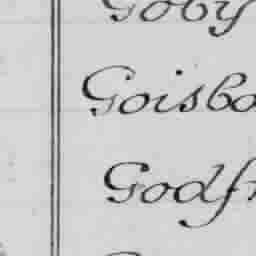 Goby
Goisbo
Godf